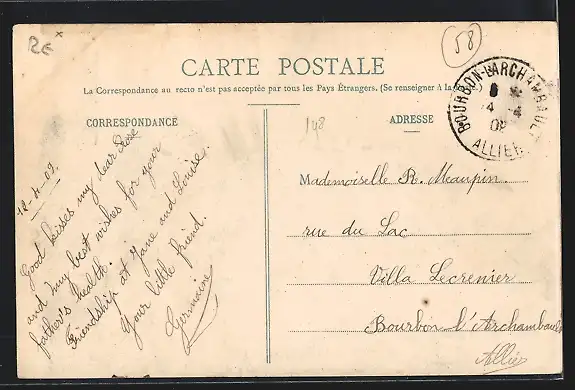 RE
58
CARTE POSTALE
La Correspondance au recto n'est pas acceptée par tous les Pays Étrangers. (Se renseigner à la Poste.)
CORRESPONDANCE
148
ADRESSE
BOURBON-L'ARCHAMBAULT
4 -4
09
ALLIER
12-4-09.
Good kisses my dear Rose
and my best wishes for your
father's health.
Friendship at Jane and Louise.
Your little friend.
Germaine
Mademoiselle R. Maupin.
rue du Lac
Villa Lecrenier
Bourbon l'Archambault
Allier